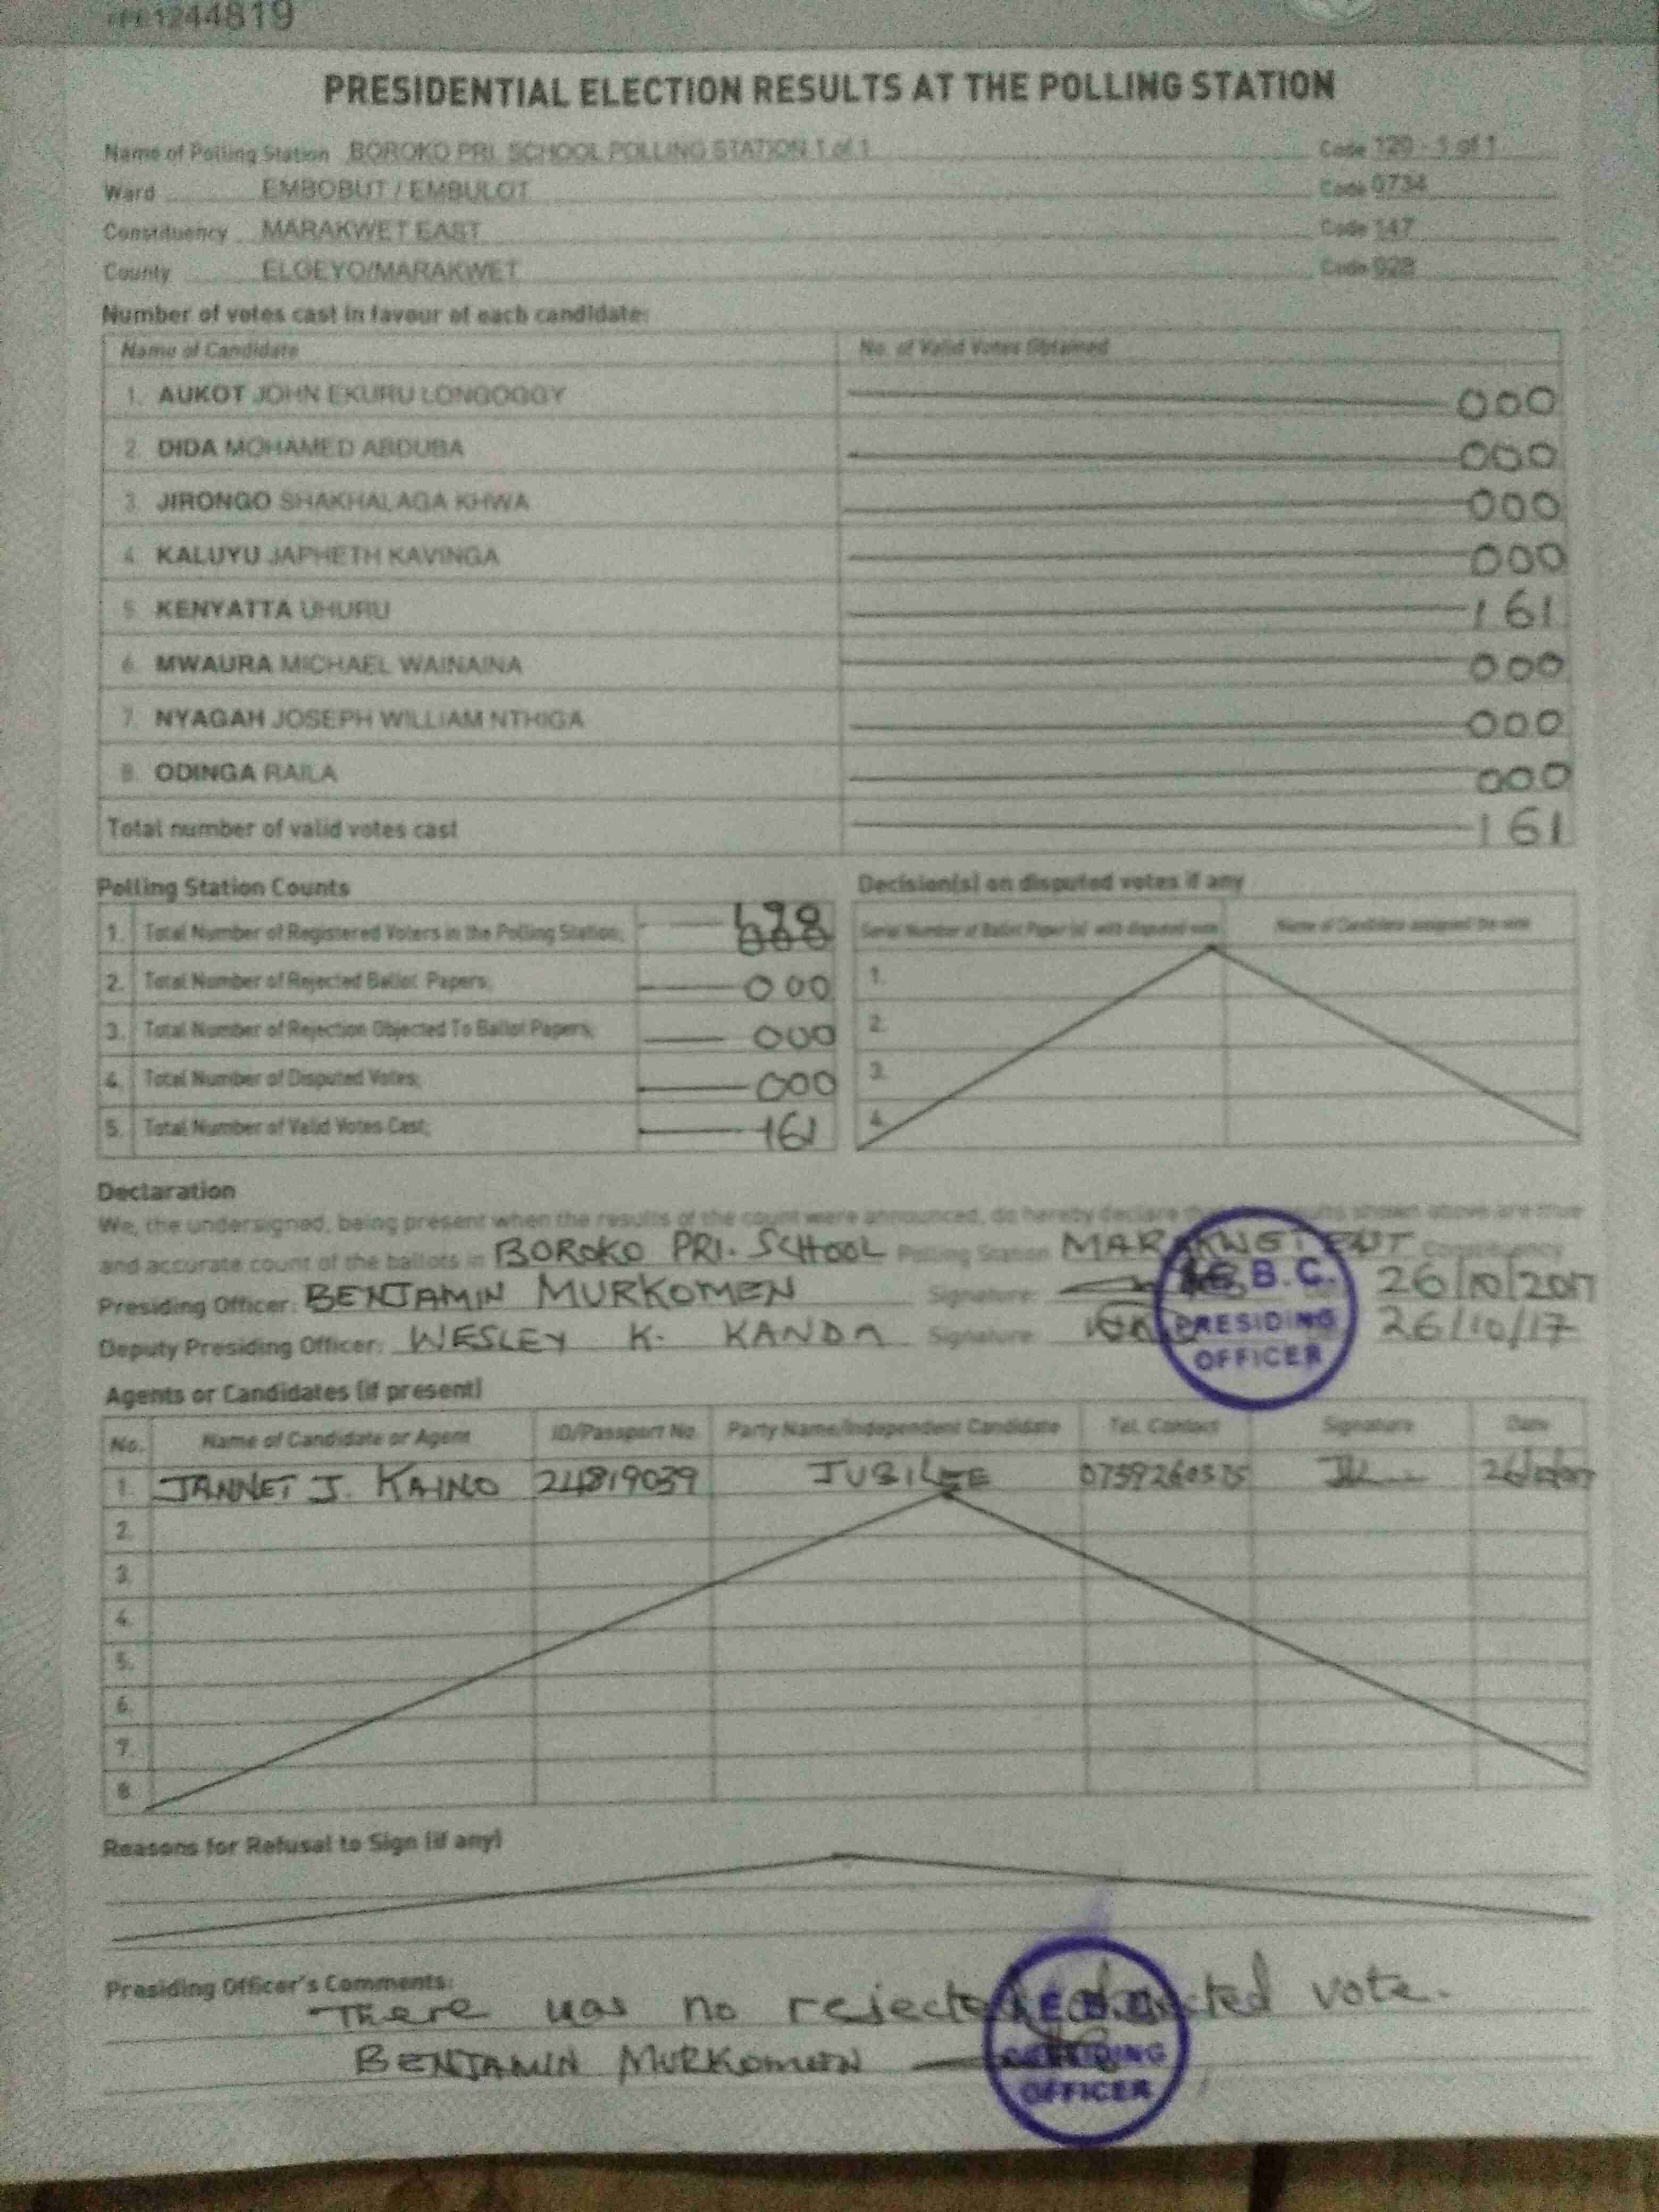 1244819
PRESIDENTIAL ELECTION RESULTS AT THE POLLING STATION
Name of Polling Station BOROKO PRI. SCHOOL POLLING STATION 1 of 1 Code 120 - 1 of 1
Ward EMBOBUT / EMBULOT Code 0734
Constituency MARAKWET EAST Code 147
County ELGEYO/MARAKWET Code 028
Number of votes cast in favour of each candidate:
Name of Candidate No. of Valid Votes Obtained
1. AUKOT JOHN EKURU LONGOGGY 000
2. DIDA MOHAMED ABDUBA 000
3. JIRONGO SHAKHALAGA KHWA 000
4. KALUYU JAPHETH KAVINGA 000
5. KENYATTA UHURU 161
6. MWAURA MICHAEL WAINAINA 000
7. NYAGAH JOSEPH WILLIAM NTHIGA 000
8. ODINGA RAILA 000
Total number of valid votes cast 161
Polling Station Counts Decision(s) on disputed votes if any
Serial Number of Ballot Paper(s) with disputed vote Name of Candidate assigned the vote
1. Total Number of Registered Voters in the Polling Station; 000
2. Total Number of Rejected Ballot Papers; 000 1.
3. Total Number of Rejection Objected To Ballot Papers; 000 2.
4. Total Number of Disputed Votes; 000 3.
5. Total Number of Valid Votes Cast; 161 4.
Declaration
We, the undersigned, being present when the results of the count were announced, do hereby declare shown above are true
and accurate count of the ballots in BOROKO PRI. SCHOOL Polling Station MARAKWET Constituency
Presiding Officer: BENJAMIN MURKOMEN Signature: 26/10/2017
Deputy Presiding Officer: WESLEY K. KANDA Signature: 26/10/17
B.C.
PRESIDING
OFFICER
Agents or Candidates (if present)
No. Name of Candidate or Agent ID/Passport No. Party Name/Independent Candidate Tel. Contact Signature Date
1. JANNET J. KAINO 24819039 JUBILEE
2.
3.
4.
5.
6.
7.
8.
Reasons for Refusal to Sign (if any)
Presiding Officer's Comments:
There was no vote.
BENJAMIN MURKOMEN
PRESIDING
OFFICER